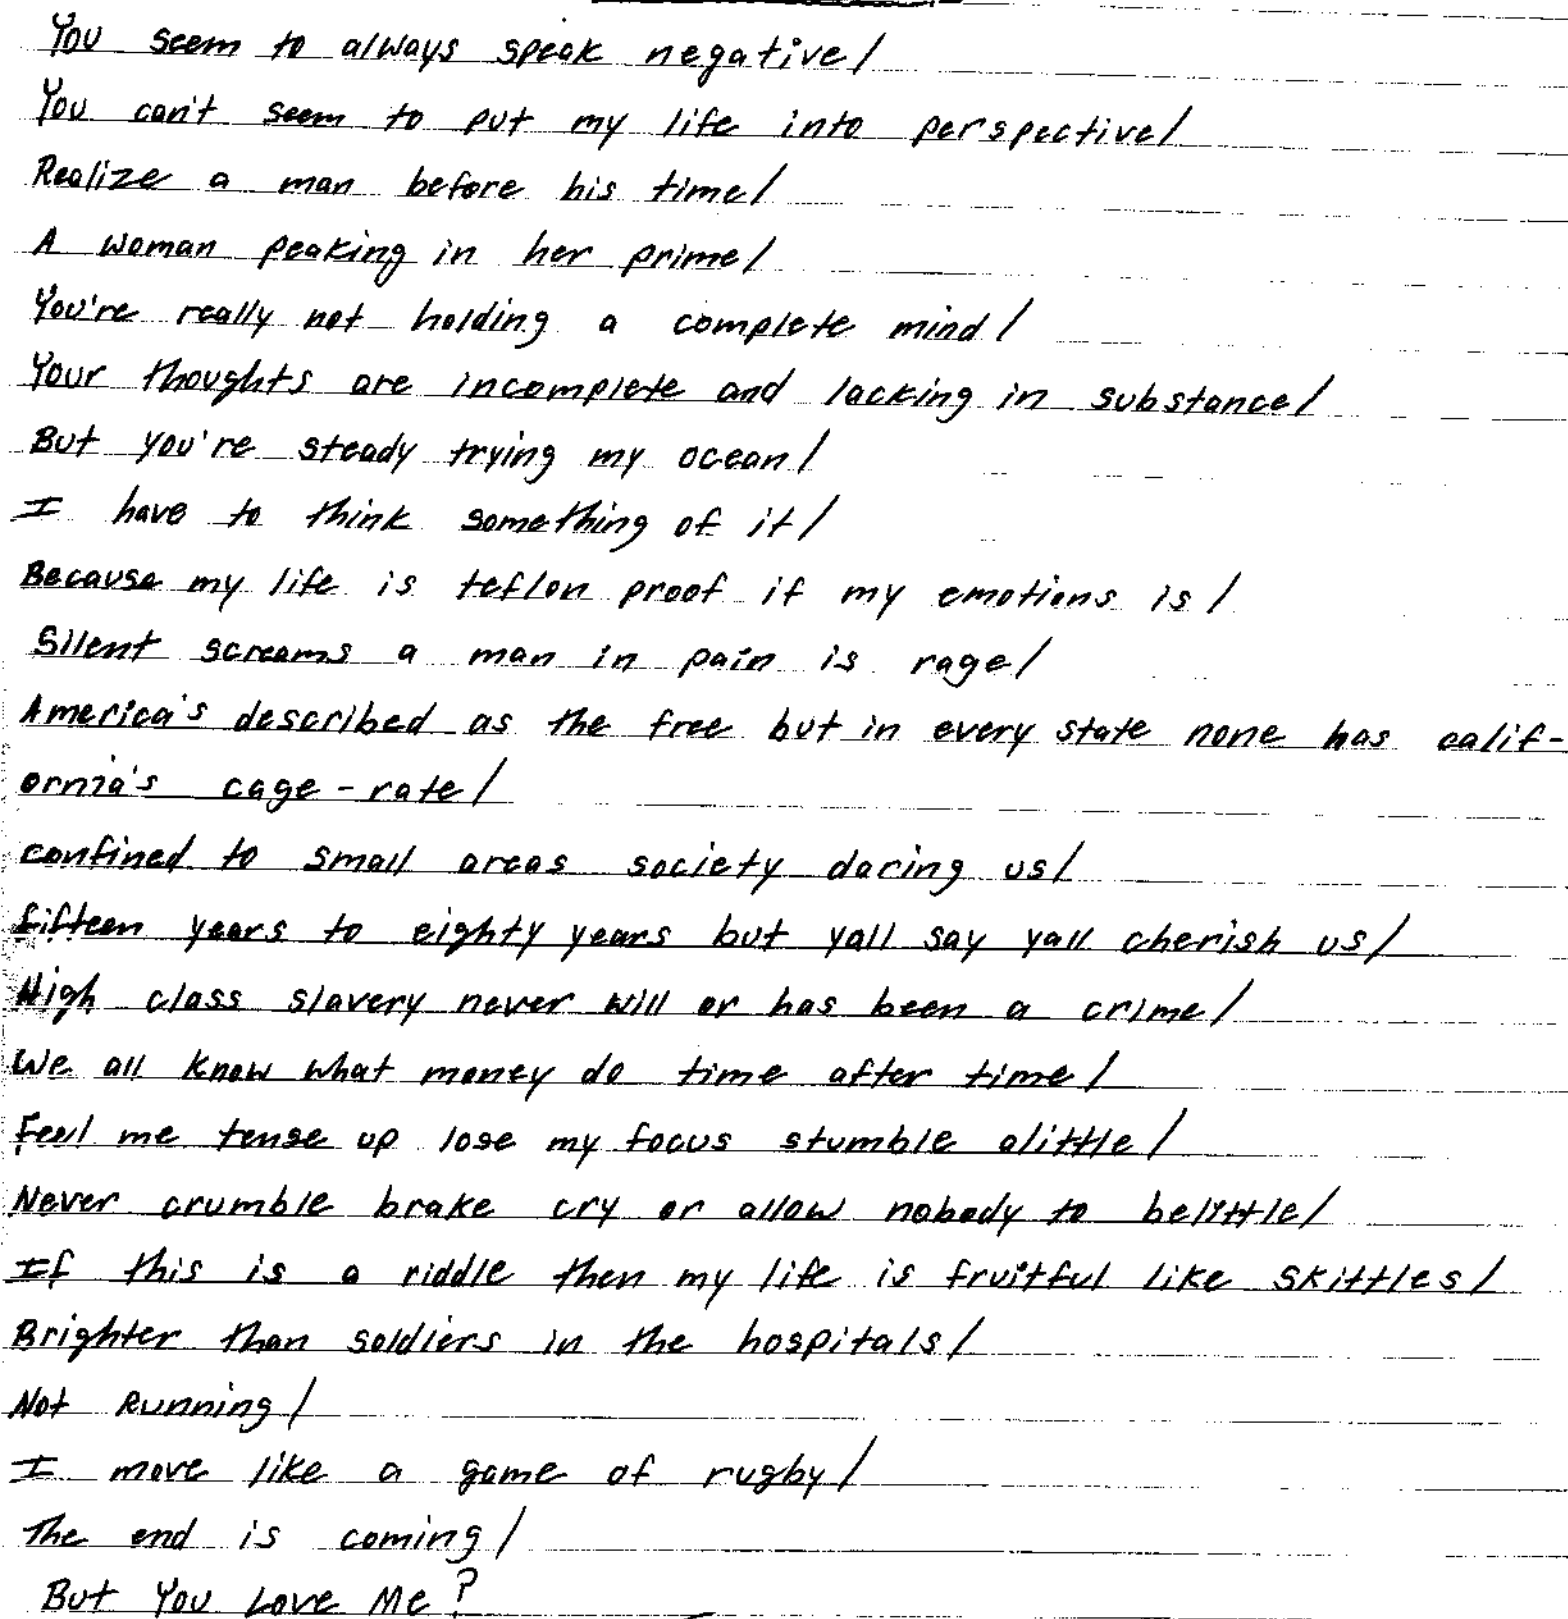 You seem to always speak negative/
You can't seem to put my life into perspective/
Realize a man before his time/
A woman peaking in her prime/
You're really not holding a complete mind/
Your thoughts are incomplete and lacking in substance/
But you're steady trying my ocean/
I have to think something of it/
Because my life is teflon proof if my emotions is/
Silent screams a man in pain is rage/
America's described as the free but in every state none has calif-
ornia's cage-rate/
confined to small areas society daring us/
fifteen years to eighty years but yall say yall cherish us/
High class slavery never will or has been a crime/
We all know what money do time after time/
Feel me tense up lose my focus stumble alittle/
Never crumble brake cry or allow nobody to belittle/
If this is a riddle then my life is fruitful like skittles/
Brighter than soldiers in the hospitals/
Not Running/
I move like a game of rugby/
The end is coming/
But You Love Me?